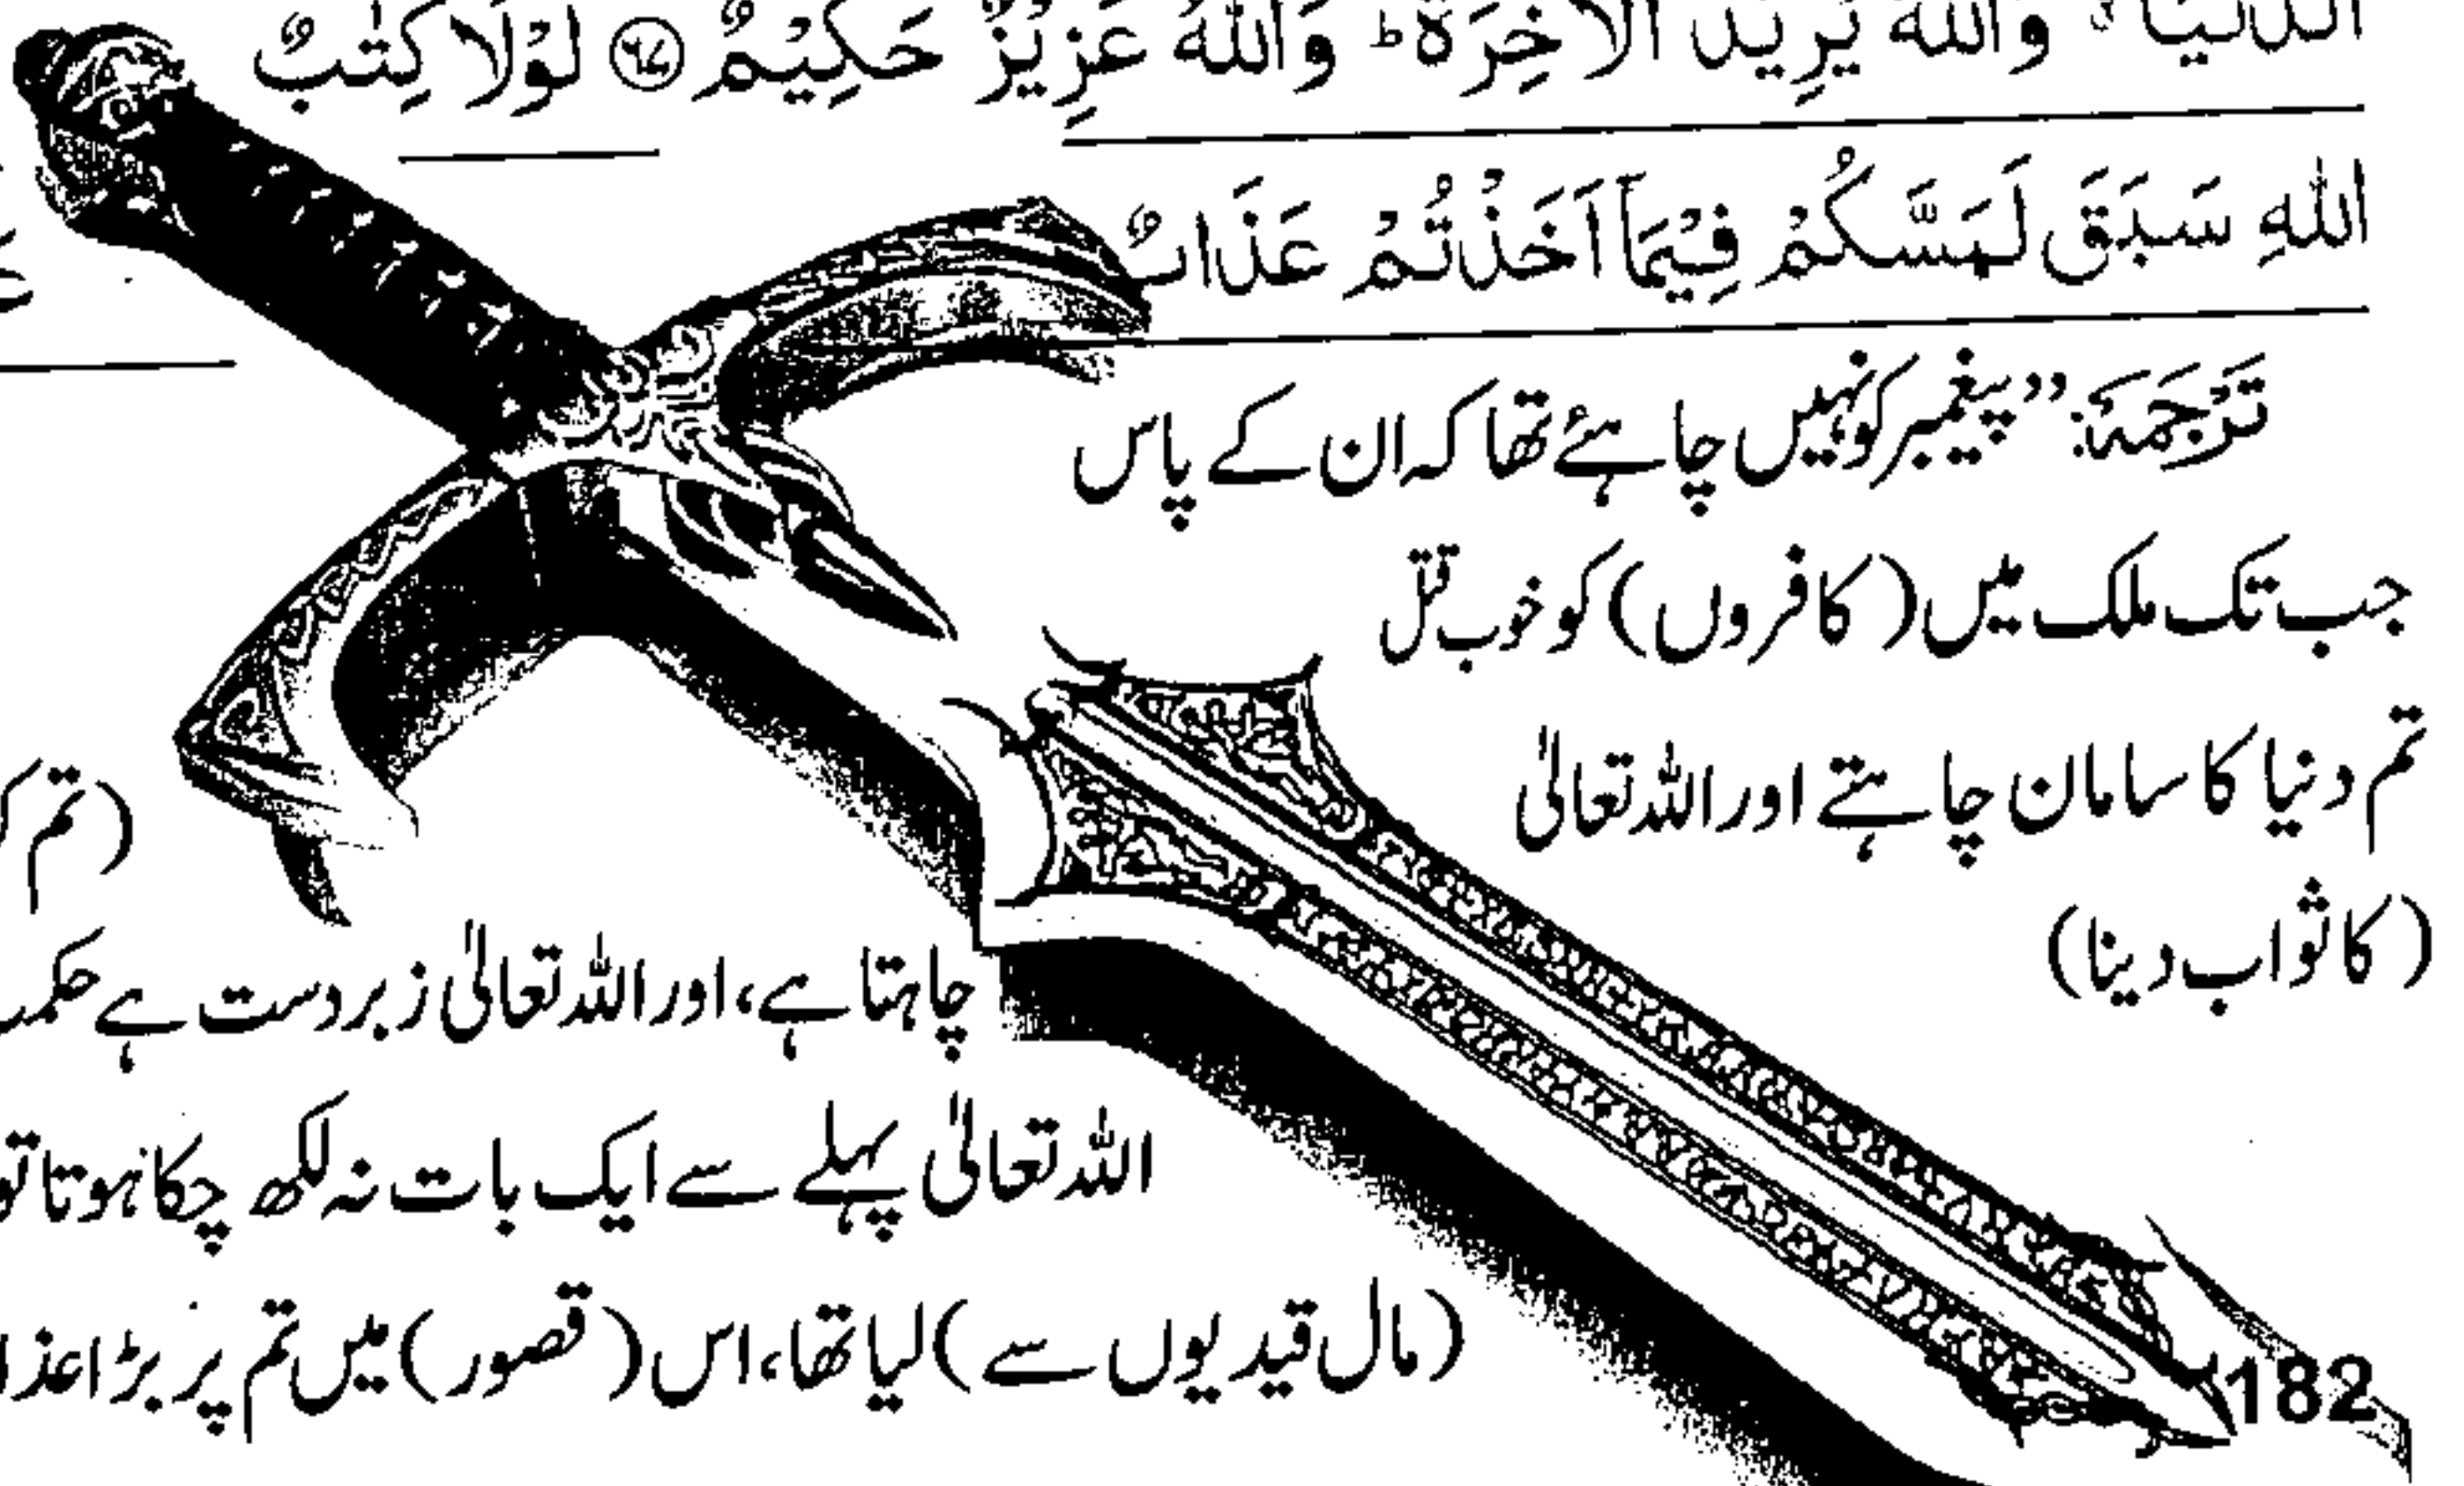 الدُّنْيَا ۖ وَاللّٰهُ يُرِيْدُ الْاٰخِرَةَ ؕ وَاللّٰهُ عَزِيْزٌ حَكِيْمٌ ﴿۶۷﴾ لَوْلَا كِتٰبٌ
اللّٰهِ سَبَقَ لَمَسَّكُمْ فِيْمَآ اَخَذْتُمْ عَذَابٌ
تَرْجَمَۃ: ’’پیغمبر کو نہیں چاہئے تھا کہ ان کے پاس
جب تک ملک میں (کافروں) کو خوب قتل
تم دنیا کا سامان چاہتے اور اللہ تعالیٰ (تم
(کا ثواب دینا)
چاہتا ہے، اور اللہ تعالیٰ زبردست ہے
اللہ تعالیٰ پہلے سے ایک بات نہ لکھ چکا ہوتا تو
(مال قیدیوں سے) لیا تھا، اس (قصور) میں تم پر بڑا
182